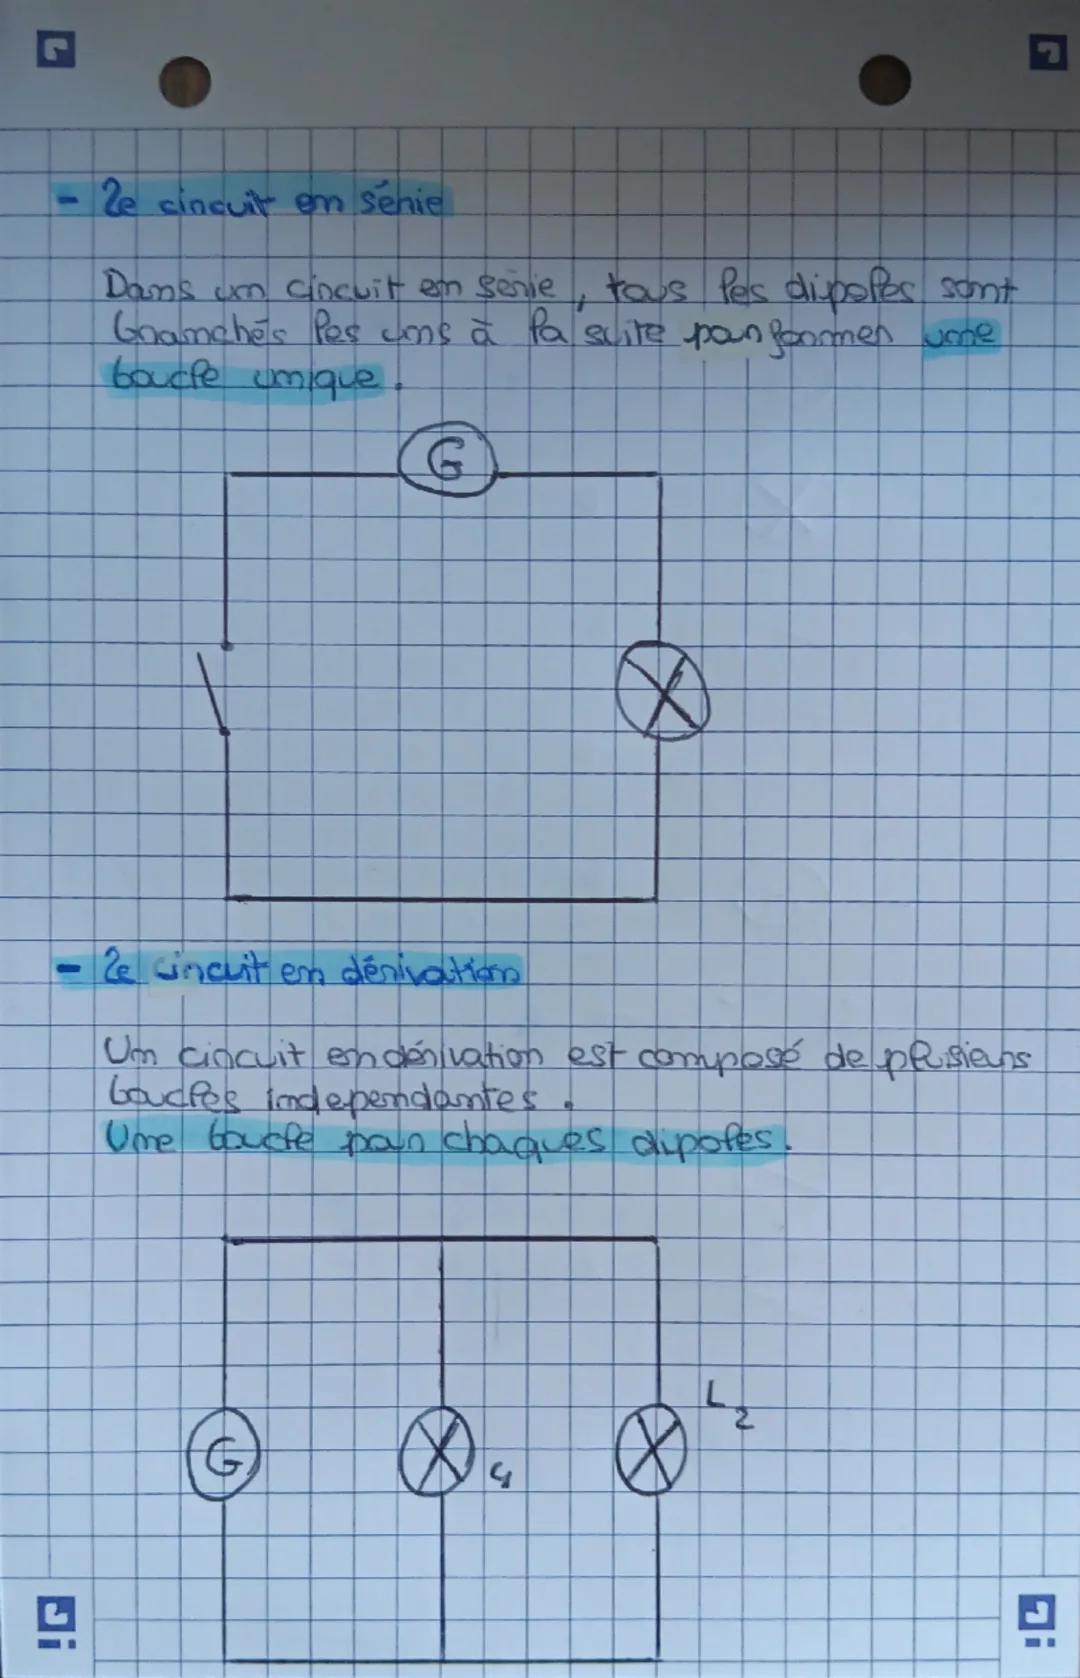 - Le circuit en série
Dans un circuit en série, tous les dipoles sont
branchés les uns à la suite par former une
boucle unique.
G
- Le circuit en dérivation
Un circuit en dérivation est composé de plusieurs
boucles independantes.
Une boucle par chaques dipoles.
L2
G
L1